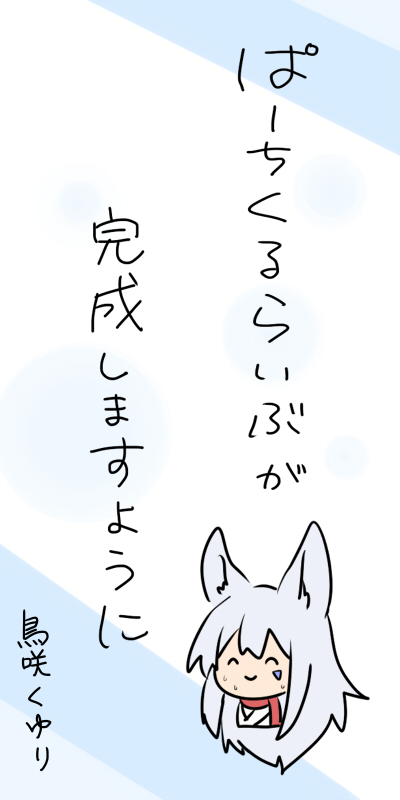 ぱーちくるらいぶが
完成しますように
鳥咲くゆり